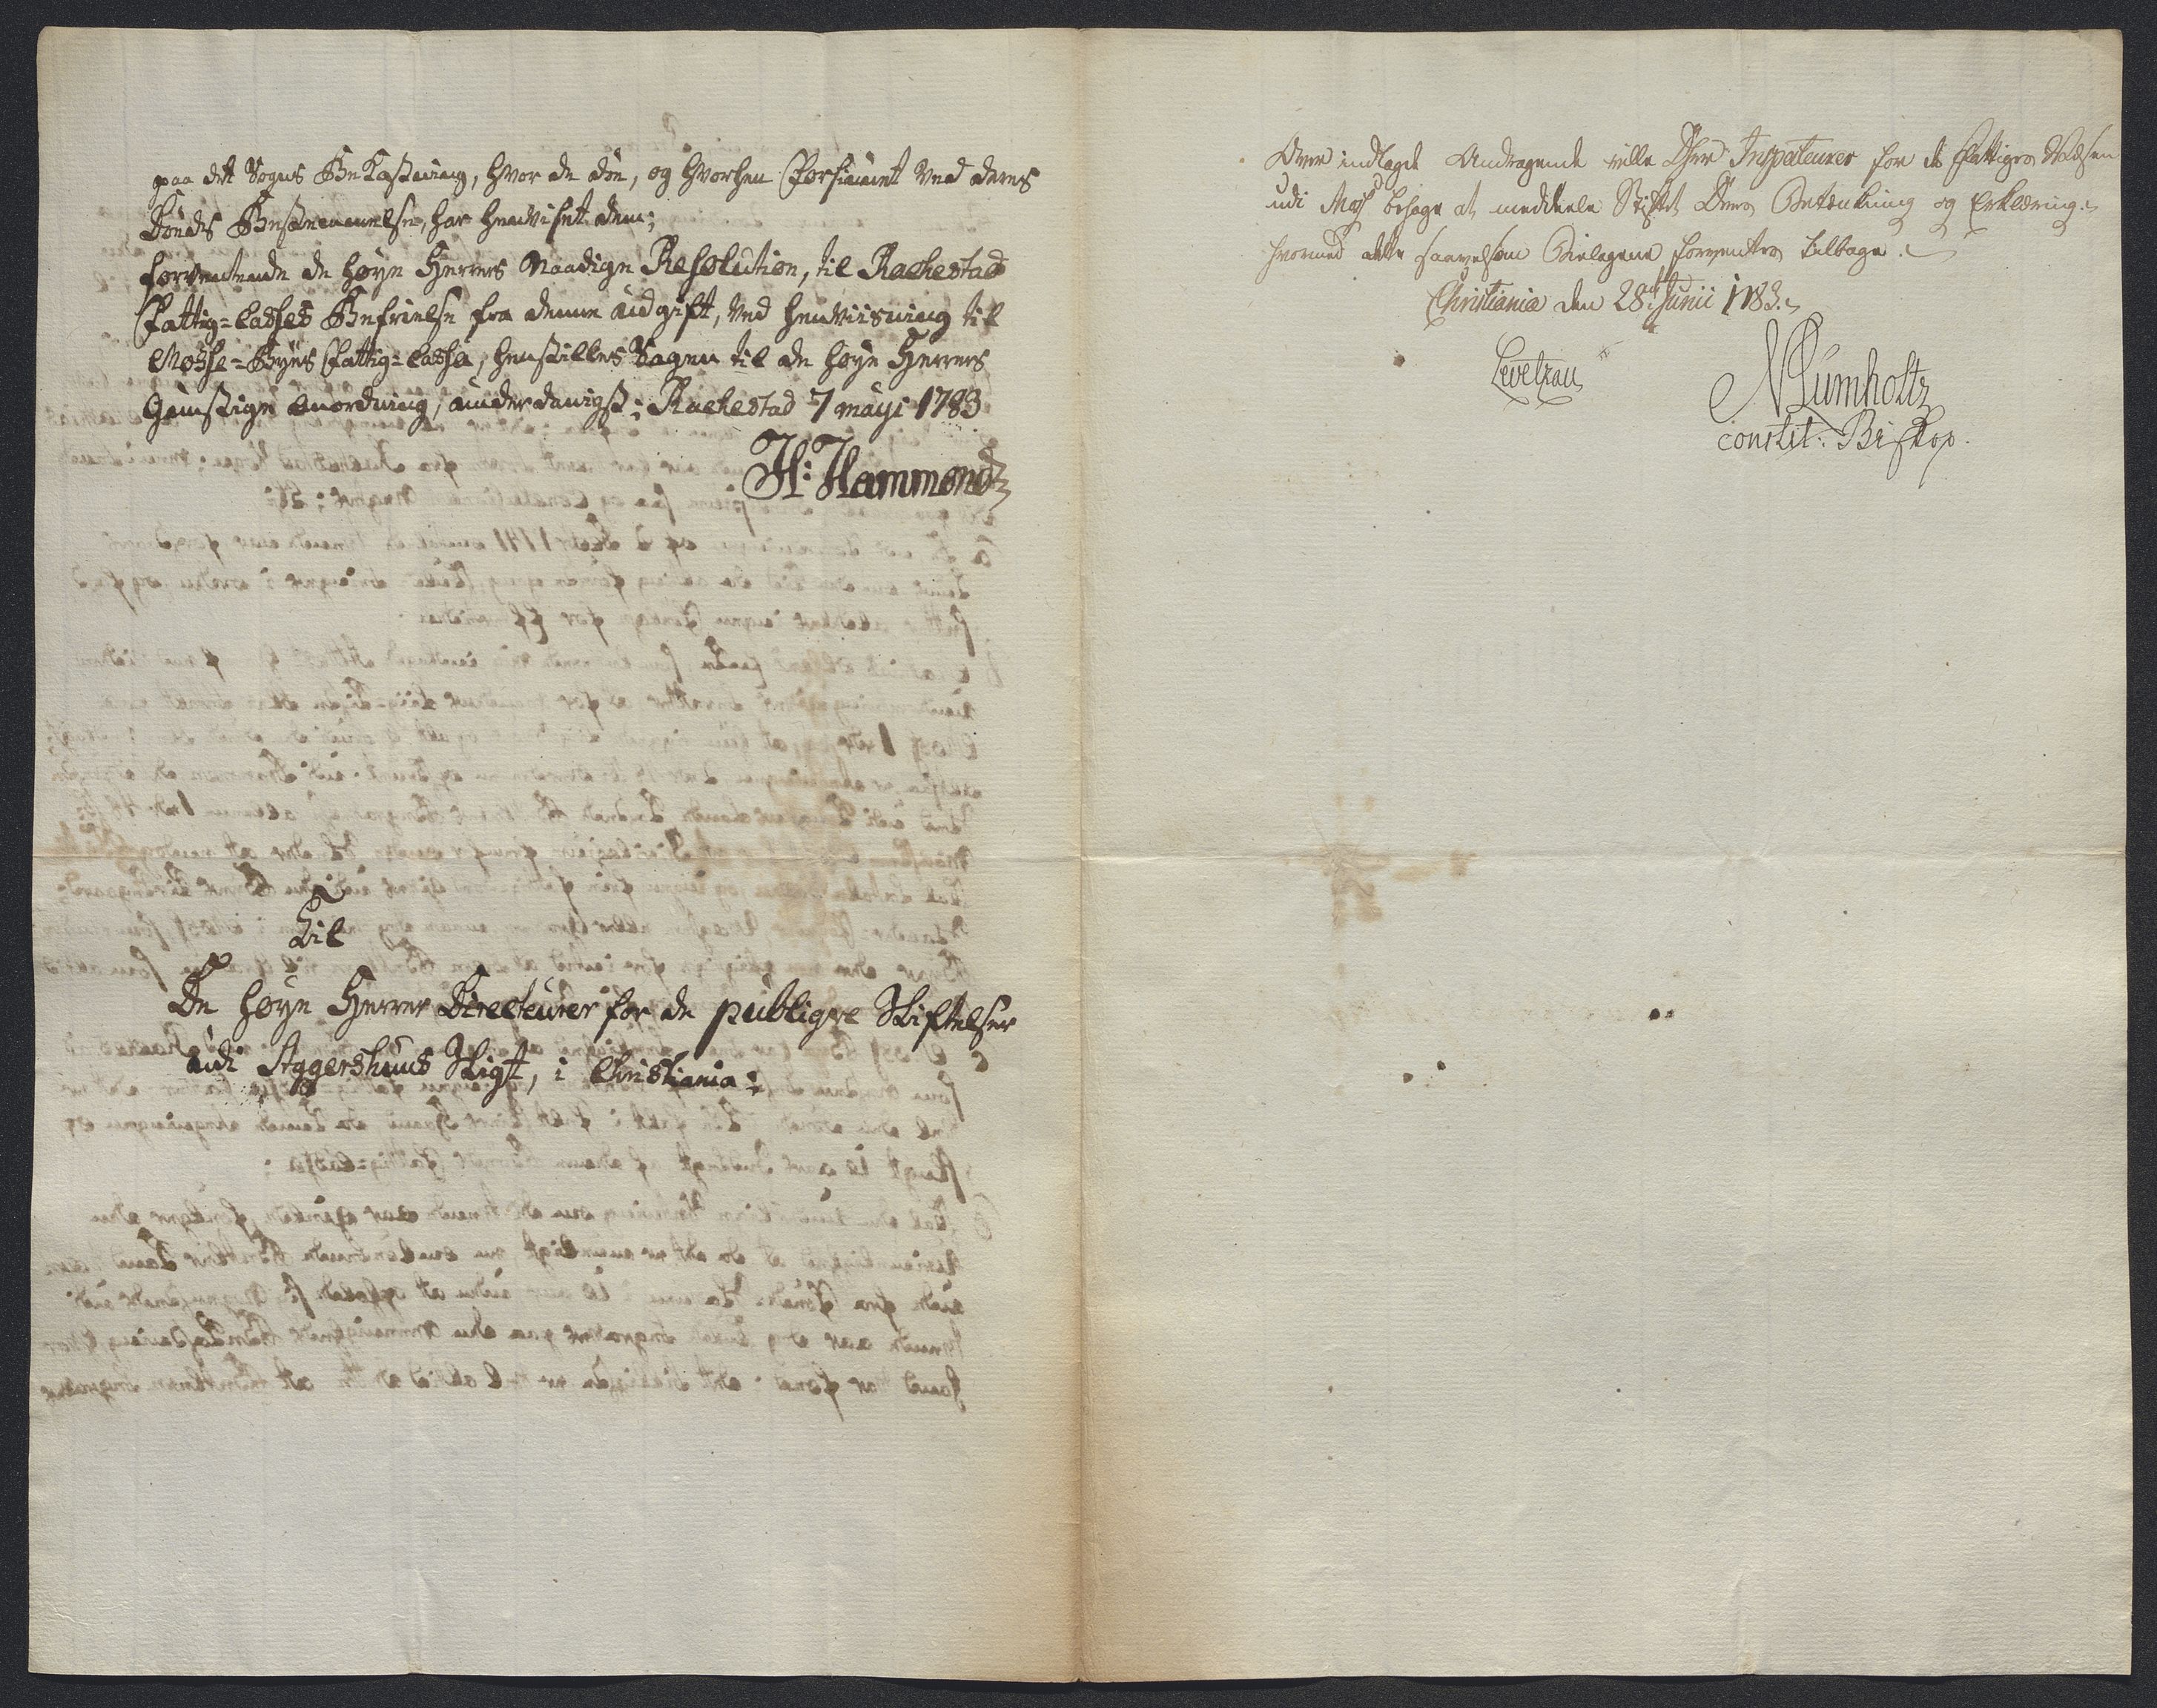 paa det Sogns Bekaastning, hvor de döe, og hvorhen Forsiunet ved deres
Döds Bestemmelse, har henvist dem;
forventende de høye Herrers Naadige Resolution, til Rachestad
Fattig=Casses Befrielse fra denne Udgift, ved henviisning til
Mosse=Byes Fattig=Cassa, henstilles Sagen til de høye Herrers
Gunstige Anordning, underdanigst; Rachestad 7 mayi 1783
H: Hammond
Til
De høye Herrer Directeurer for de publiqve Stiftelser
udi Aggershuus Stigt, i Christiania:
Over indlagde Andragende ville Dhrr: Inspecteurer for de Fattiges Wæsen
udi Moss behage at meddeele Stiftet Deres Betænkning og Erklæring.
hvormed dette saavelsom Bielagene forventes tilbage.
Christiania den 28de Junii 1783.
Levetzau
N Lumholtz
constit: Biskop.